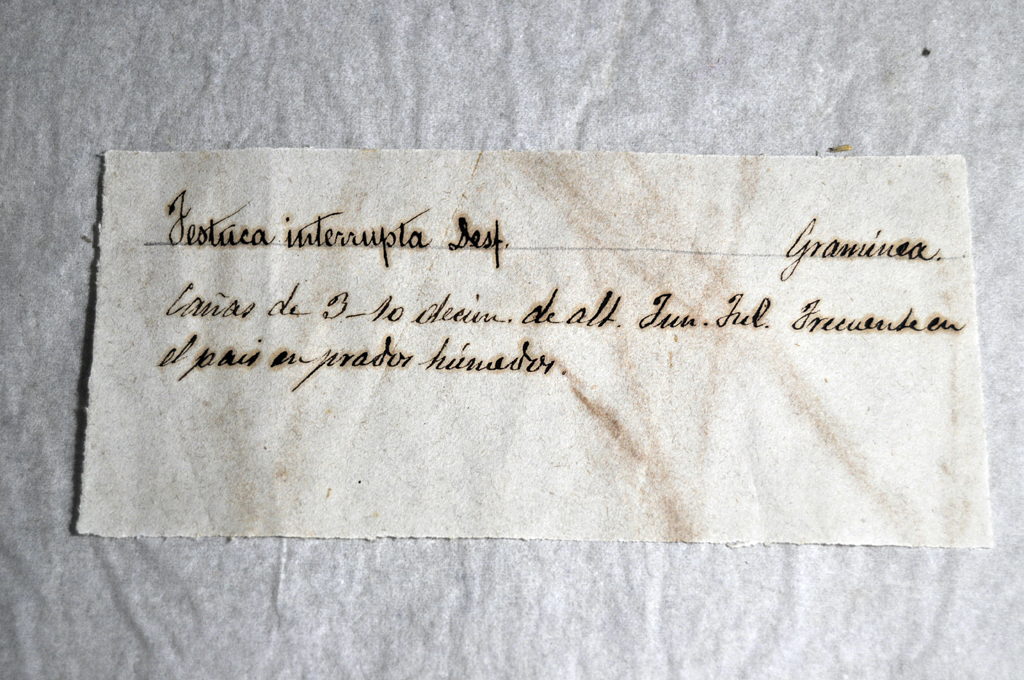 Festuca interrupta Desf. Graminea.
Cañas de 3-10 decim. de alt. Jun. Jul. Frecuente en
el pais en prados húmedos.